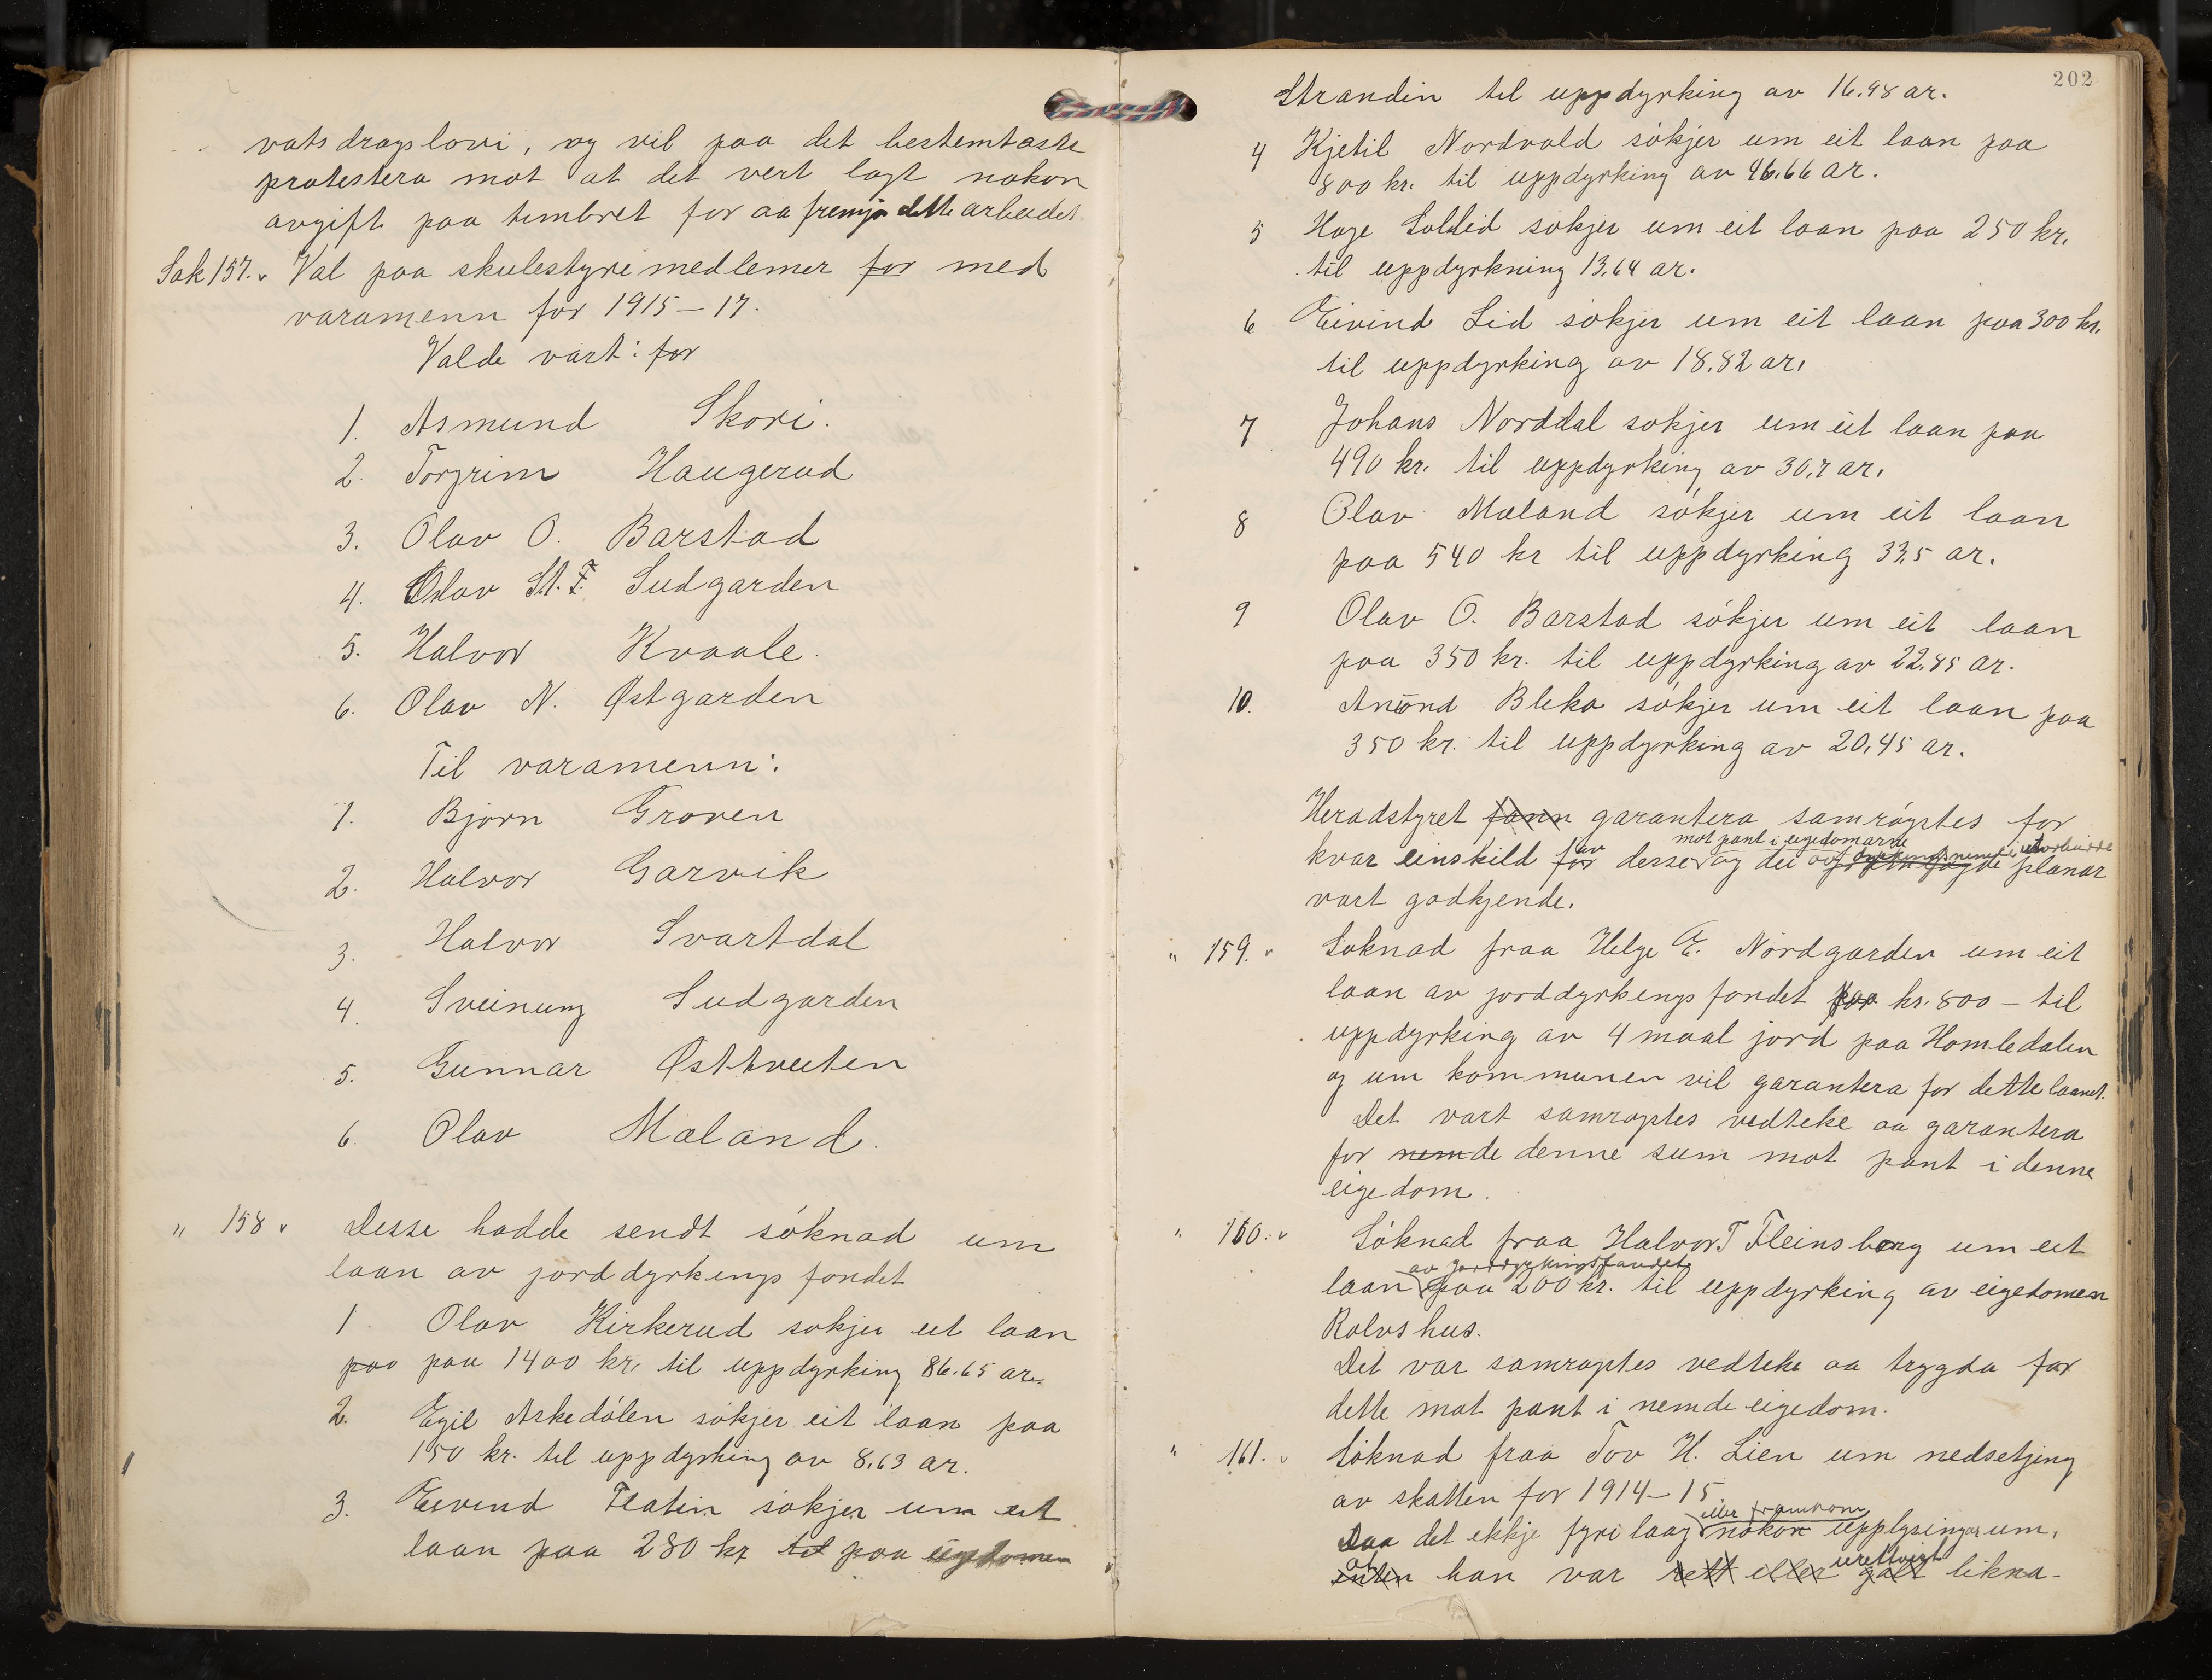 vatsdragslovi, og vil paa det bestemtaste
protestera mot at det vert lagt nokon
avgift paa timbret for aa fremja dette arbeidet.
Sak 157. Val paa skulestyremedlemer for med
varamenn for 1915–17.
Valde vart: for
1. Asmund Skori.
2. Torgrim Haugerud
3. Olav O. Barstad
4. Olav St. T. Sudgarden
5. Halvor Kvaale.
6. Olav N. Østgarden
Til varamenn:
1. Bjørn Groven
2. Halvor Garvik
3. Halvor Svartdal
4. Sveinung Sudgarden
5. Gunnar Østtveiten
6. Olav Mæland.
" 158 Desse hadde sendt söknad um
laan av jorddyrkings fondet
1. Olav Kirkerud sökjer eit laan
paa paa 1400 kr. til uppdyrking 86.65 ar.
2. Egil Askedálen sökjer eit laan paa
150 kr. til uppdyrking av 8,63 ar.
3. Eivind Flatin sökjer um eit
laan paa 280 kr til paa eigedomen
202
Strandin til uppdyrking av 16.98 ar.
4 Kjetil Nordvald sökjer um eit laan paa
800 kr. til uppdyrking av 46.66 ar.
5 Hage Sollid sökjer um eit laan paa 250 kr.
til uppdyrkning 13,64 ar.
6 Eivind Lid sökjer um eit laan paa 300 kr.
til uppdyrking av 18,82 ar.
7 Johans Norddal sökjer um eit laan paa
490 kr. til uppdyrking av 30,7 ar.
8 Olav Mæland sökjer um eit laan
paa 540 kr til uppdyrking 33,5 ar.
9 Olav O. Barstad sökjer um eit laan
paa 350 kr. til uppdyrking av 22,85 ar.
10. Anund Bleka sökjer um eit laan paa
350 kr. til uppdyrking av 20,45 ar.
Heradstyret fann garantera samröystes for
mot pant i eigedomarne
kvar einskild for av desse og dei av planar
vart godkjende.
" 159. Söknad fraa Helge E. Nordgarden um eit
laan av jorddyrkings fondet paa kr. 800 – til
uppdyrking av 4 maal jord paa Homledalen
og um kommunen vil garantera for dette laanet.
Det vart samröystes vedteke aa garantera
for nemde denne sum mot pant i denne
eigedom.
" 160. Söknad fraa Halvor T Fleinsberg um eit
av jorddyrkingsfondet
laan paa 200 kr. til uppdyrking av eigedomen
Rolvshus.
Det var samröystes vedteke aa trygda for
dette mot pant i nemde eigedom.
" 161. Söknad fraa Tov H. Lien um nedsetjing
av skatten for 1914–15.
eller framkom
Daa det ekkje fyri laag nokon upplysingar um,
at urettvist
enten han var rett eller galt likna-